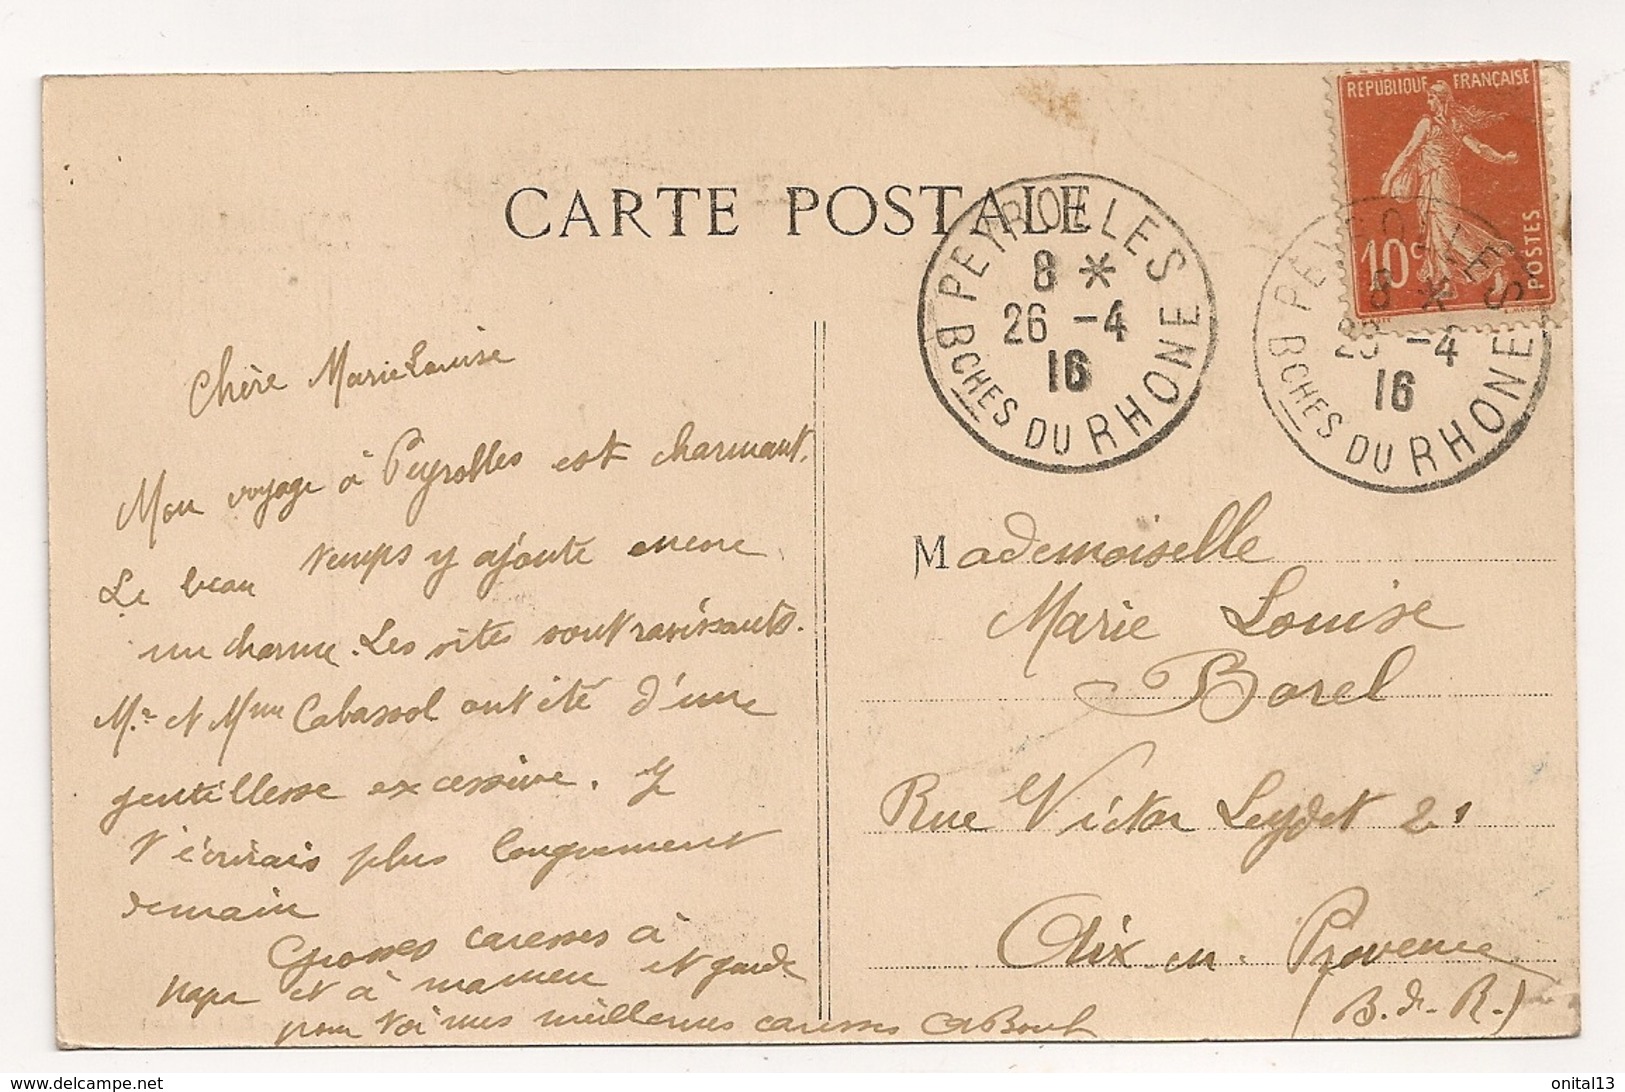 CARTE POSTALE
REPUBLIQUE FRANÇAISE
10c
POSTES
PEYROLLES
8 *
26 -4
16
BCHES DU RHONE
PEYROLLES
8 *
26 -4
16
BCHES DU RHONE
Chère Marie Louise
Mon voyage à Peyrolles est charmant.
Le beau temps y ajoute encore
un charme. Les sites sont ravissants.
Mr et Mme Cabassol ont été d'une
gentillesse excessive. Je
t'écrirais plus longuement
demain
Grosses caresses à
papa et à maman et garde
pour toi mes meilleures caresses
Mademoiselle
Marie Louise
Borel
Rue Victor Leydet 21
Aix en Provence
(B. d. R.)
delcampe.net
onital13